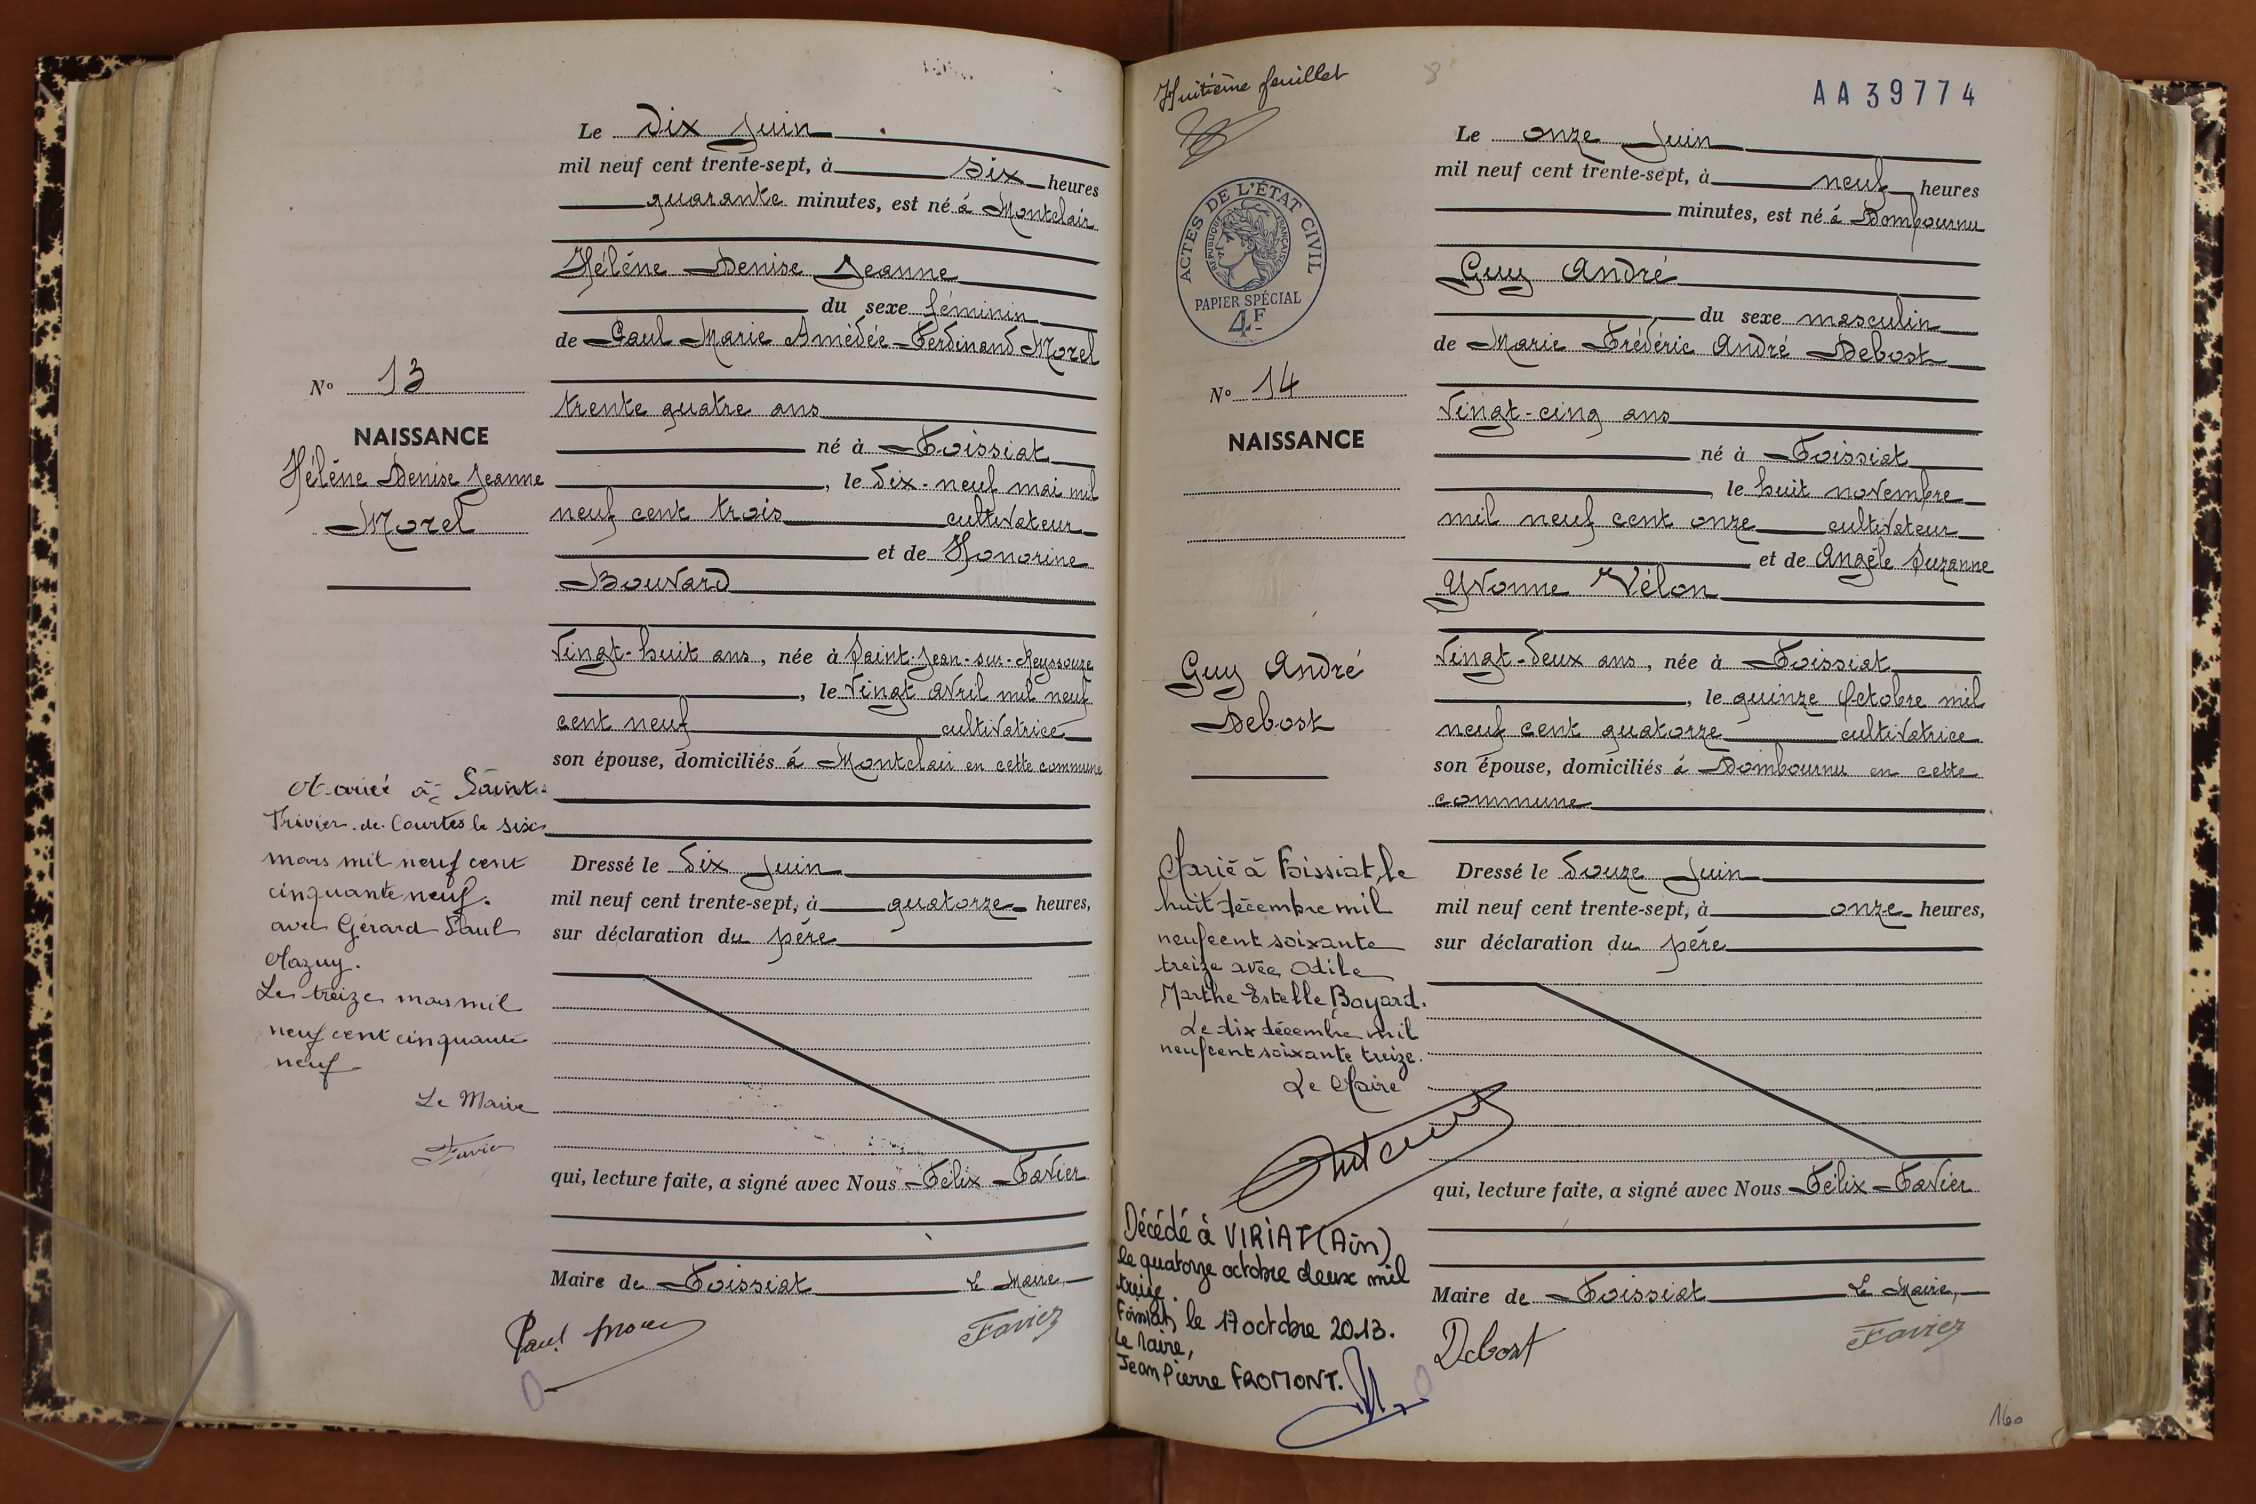 Le dix juin
mil neuf cent trente-sept, à six heures
quarante minutes, est né à Montclair
Hélène Denise Jeanne
du sexe féminin
de Paul Marie Amédée Ferdinand Morel
trente quatre ans
né à Foissiat
, le dix-neuf mai mil
neuf cent trois cultivateur
et de Honorine
Bouvard
vingt-huit ans, née à Saint-Jean-sur-Reyssouze
, le vingt avril mil neuf
cent neuf cultivatrice
son épouse, domiciliés à Montclair en cette commune
Dressé le dix juin
mil neuf cent trente-sept, à quatorze heures,
sur déclaration du père
qui, lecture faite, a signé avec Nous Félix Favier
Maire de Foissiat Le Maire,
Paul Morel
Favier
N° 13
NAISSANCE
Hélène Denise Jeanne
Morel
Mariée à Saint-
Trivier-de-Courtes le six
mars mil neuf cent
cinquante neuf.
avec Gérard Paul
Mazuy.
Le treize mars mil
neuf cent cinquante
neuf
Le Maire
Favier
Huitième feuillet
8
AA39774
ACTES DE L'ÉTAT CIVIL
RÉPUBLIQUE FRANÇAISE
PAPIER SPÉCIAL
4F
Le onze juin
mil neuf cent trente-sept, à neuf heures
minutes, est né à Dombournu
Guy André
du sexe masculin
de Marie Frédéric André Debost
vingt-cinq ans
né à Foissiat
, le huit novembre
mil neuf cent onze cultivateur
et de Angèle Suzanne
Yvonne Vélon
vingt-deux ans, née à Foissiat
, le quinze octobre mil
neuf cent quatorze cultivatrice
son épouse, domiciliés à Dombournu en cette
commune
Dressé le douze juin
mil neuf cent trente-sept, à onze heures,
sur déclaration du père
qui, lecture faite, a signé avec Nous Félix Favier
Maire de Foissiat Le Maire,
Debost
Favier
N° 14
NAISSANCE
Guy André
Debost
Marié à Foissiat, le
huit décembre mil
neuf cent soixante
treize avec Odile
Marthe Estelle Bayard.
Le dix décembre mil
neuf cent soixante treize.
Le Maire
Décédé à VIRIAT (Ain)
le quatorze octobre deux mil
treize.
Foissiat, le 17 octobre 2013.
Le Maire,
Jean Pierre FROMONT.
160